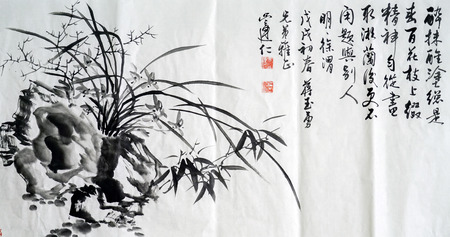 醉抹醒塗總是
春百花枝上綴
精神自從畫
取湘蘭後更不
閑題與別人
明·徐渭
戊戌初春 玉
兄弟雅正
建仁